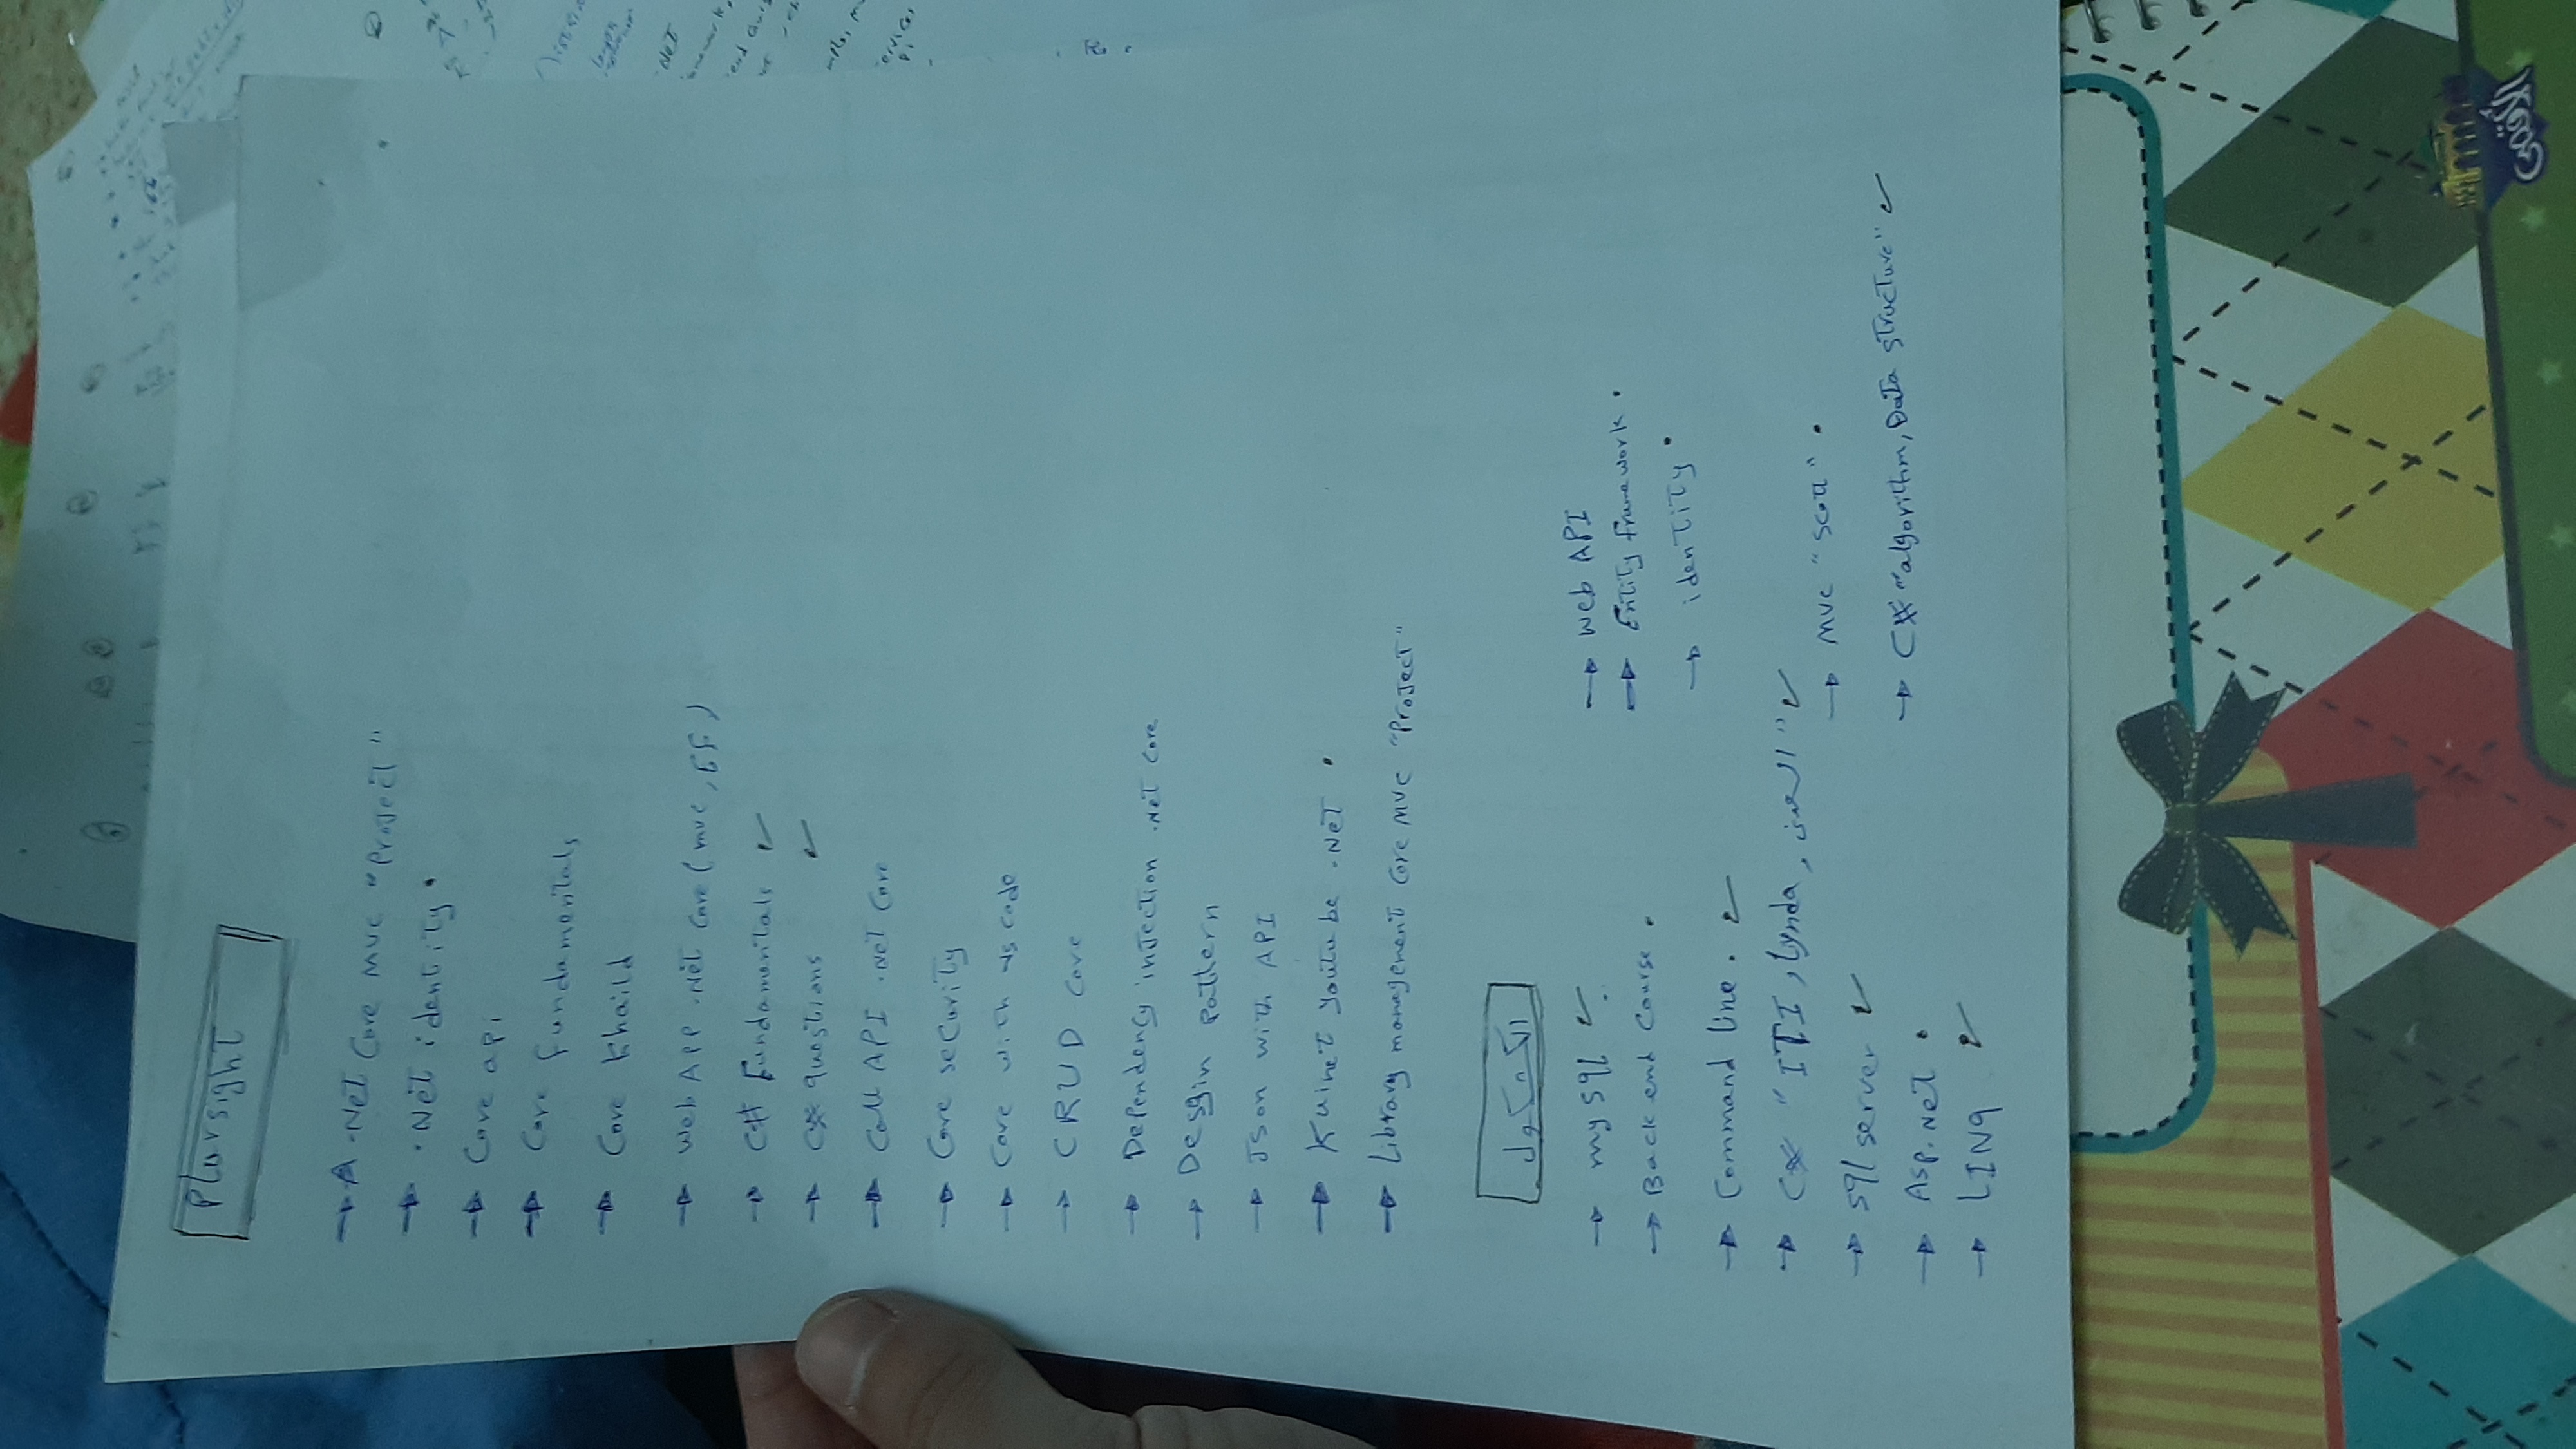 Plursight
→ A .Net Core MVC "Project"
→ .Net identity .
→ Core api
→ Core fundamentals
→ Core Khaild
→ Web App .Net Core (mvc, EF)
→ C# Fundamentals ✓
→ C# questions ✓
→ Call API .Net Core
→ Core security
→ Core with vs code
→ CRUD Core
→ Dependency injection .Net Core
→ Desgin pattern
→ Json with API
→ Youtube .Net .
→ Library management Core MVC "Project"
الكشكول
→ my sql ✓
→ Back end Course .
→ Command line . ✓
→ C# "ITI, lynda, " ✓
→ sql server ✓
→ Asp.Net .
→ LINq ✓
→ Web API
→ Entity framework .
→ identity .
→ MVC "scott" .
→ C# "algorithm, Data structure" ✓
.Net
الأقصى